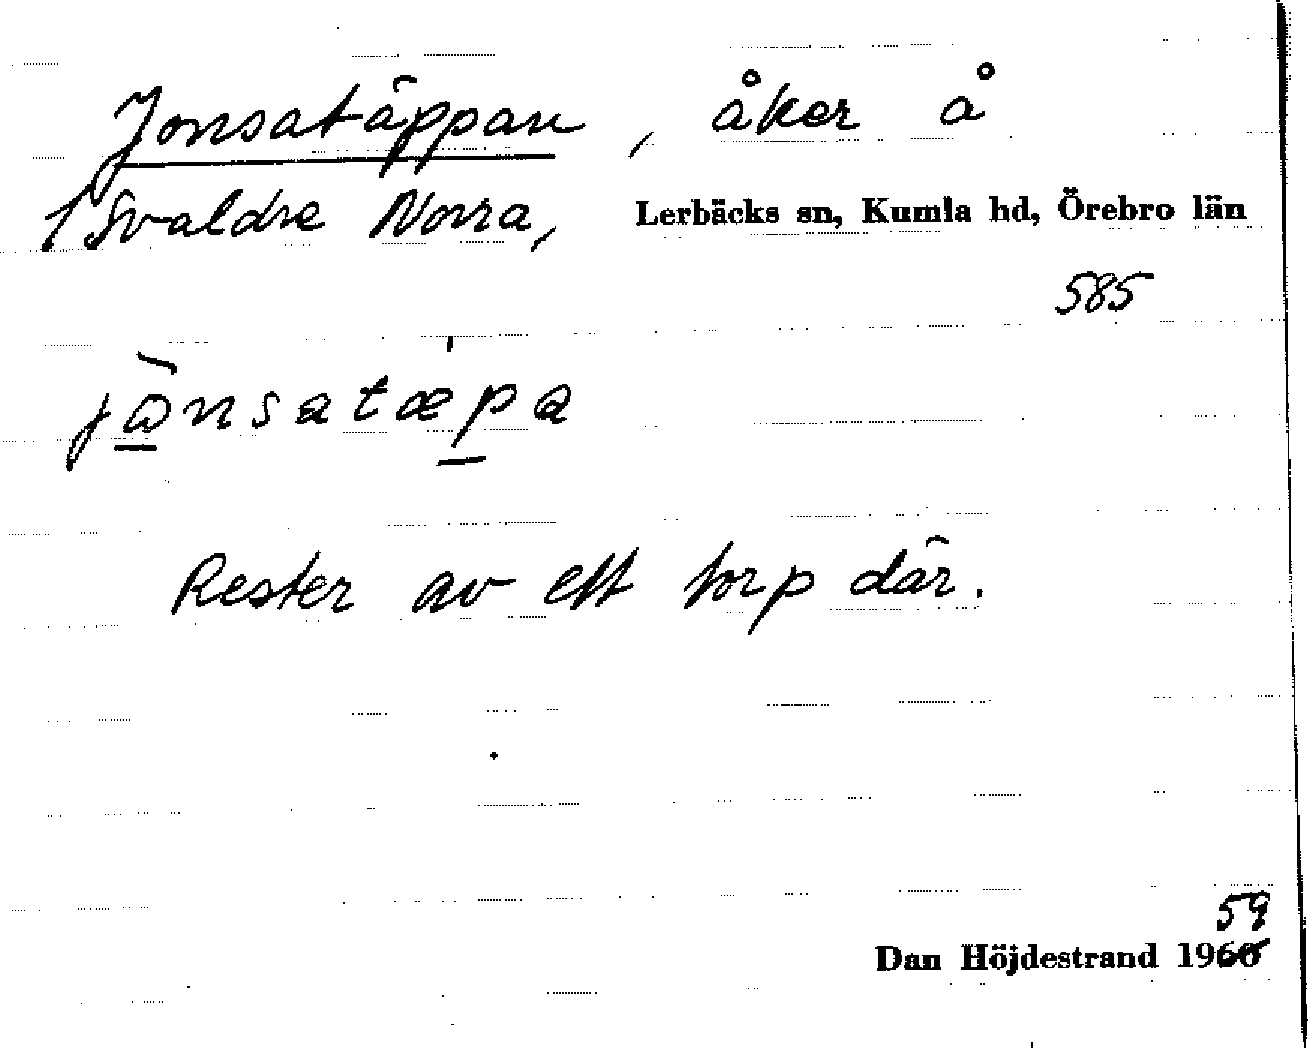 Jonsatäppan, åker å
1/ Svaldre Norra, Lerbäcks sn, Kumla hd, Örebro län
585
jὼnsatæ̀pa
Rester av ett torp där.
59
Dan Höjdestrand 1960